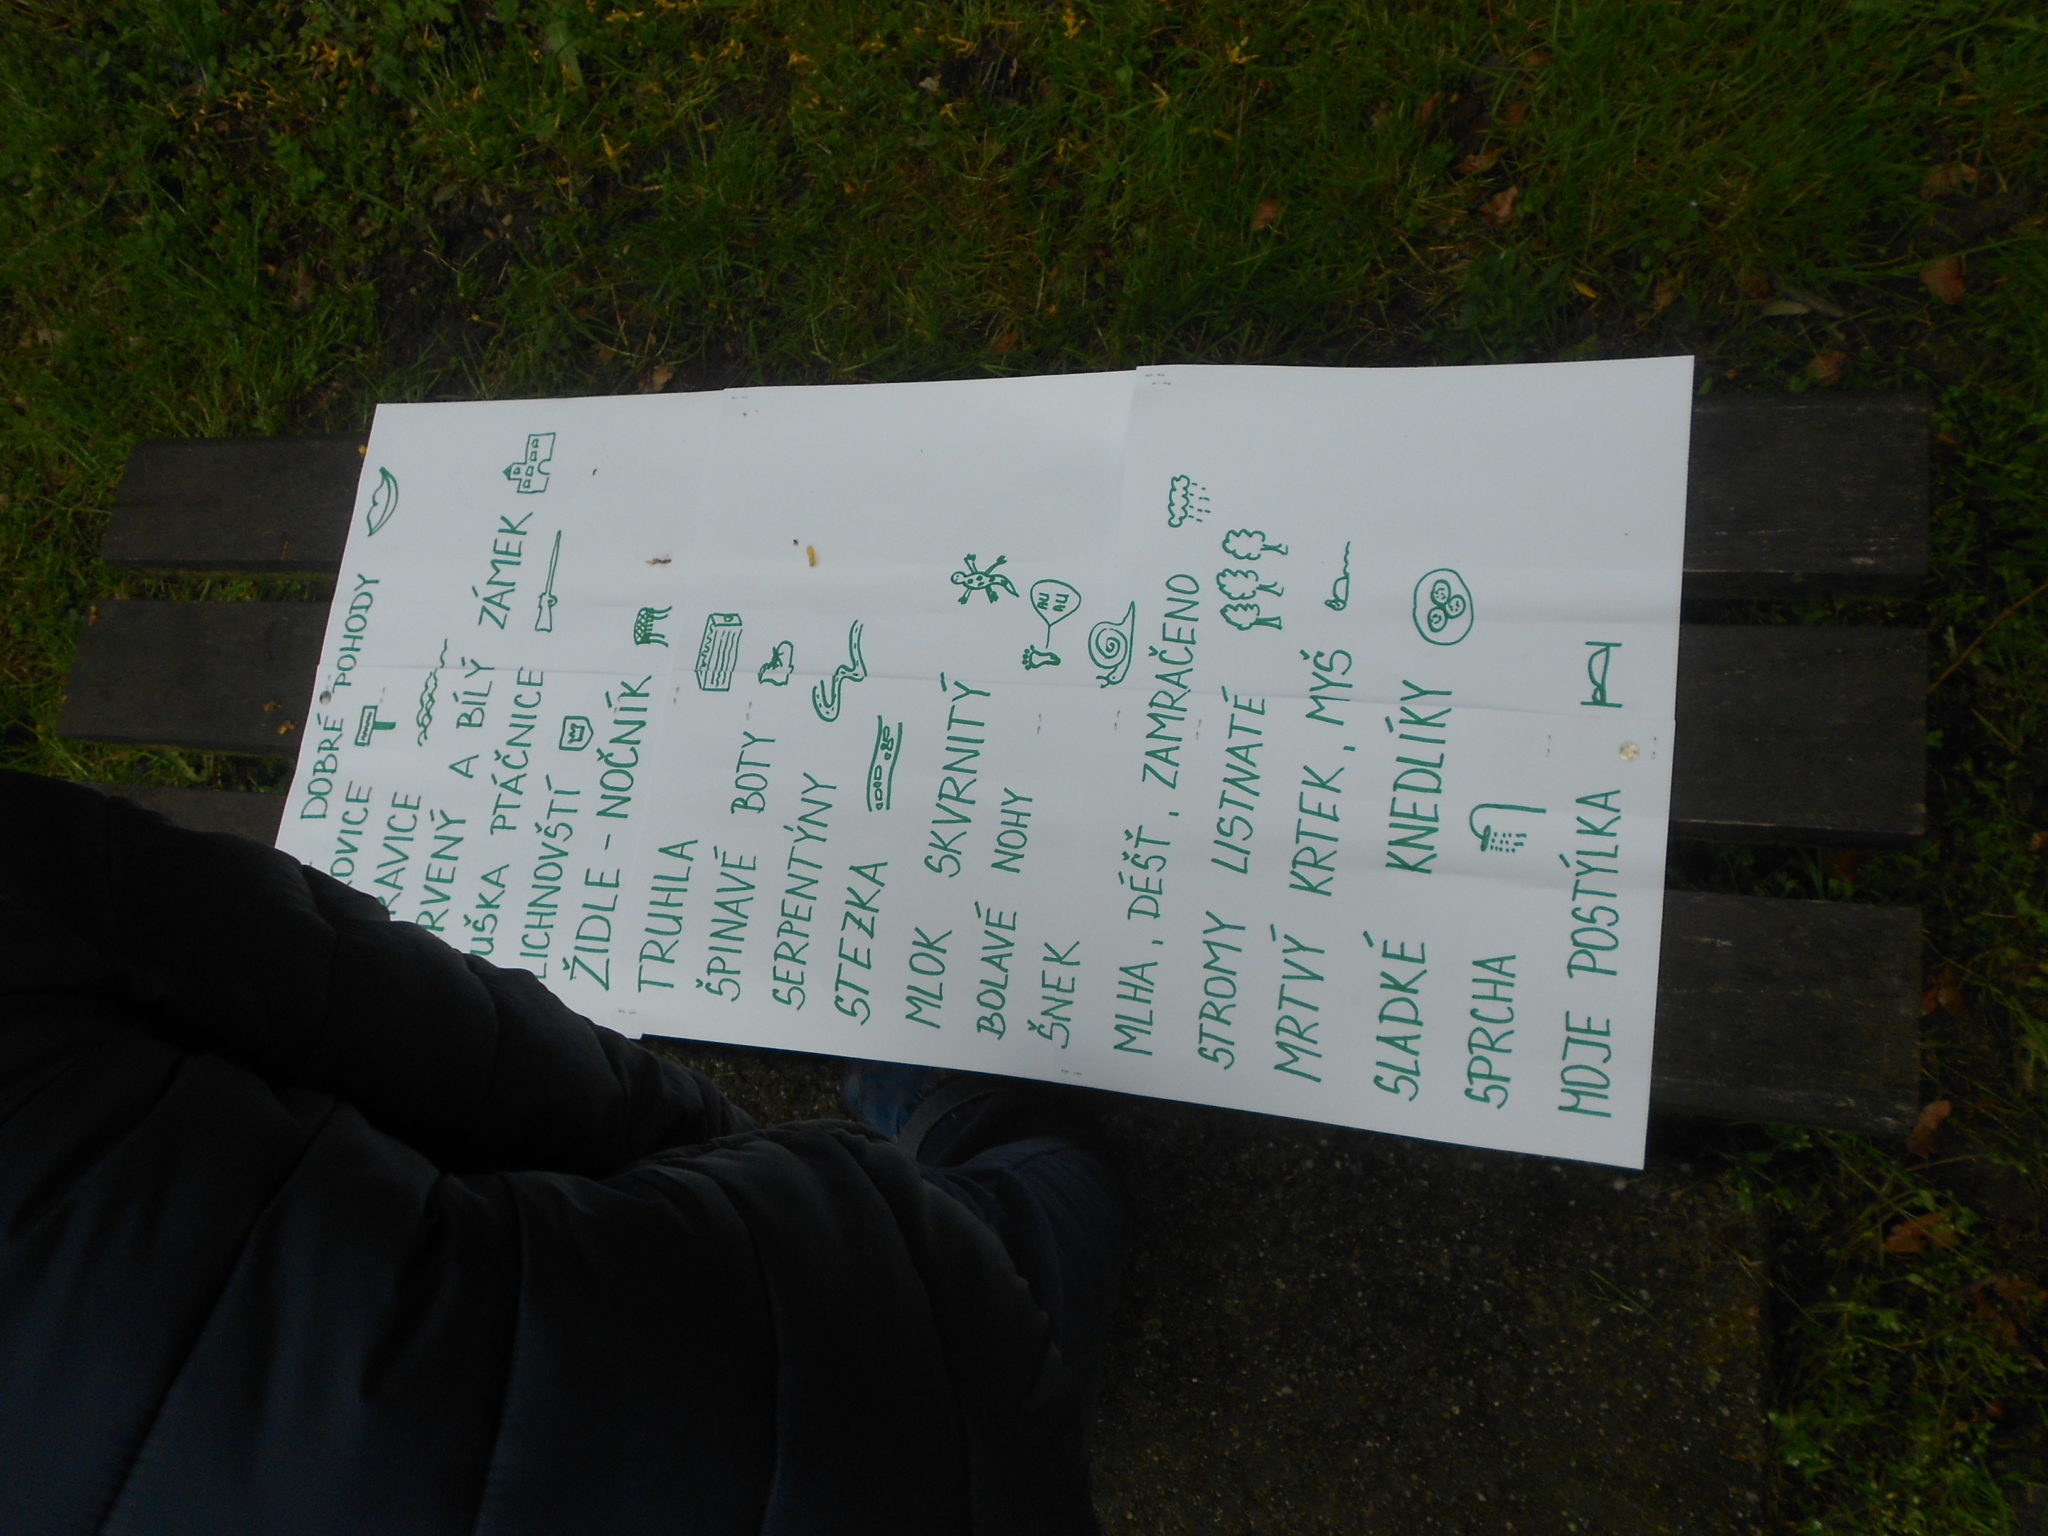 DOBRÉ POHODY
OVICE
RAVICE
RVENÝ A BÍLÝ ZÁMEK
UŠKA PTÁČNICE
LICHNOVŠTÍ
ŽIDLE - NOČNÍK
TRUHLA
ŠPINAVÉ BOTY
SERPENTÝNY
STEZKA
MLOK SKVRNITÝ
BOLAVÉ NOHY
AU AU
ŠNEK
MLHA, DÉŠŤ, ZAMRAČENO
STROMY LISTNATÉ
MRTVÝ KRTEK, MYŠ
SLADKÉ KNEDLÍKY
SPRCHA
MOJE POSTÝLKA